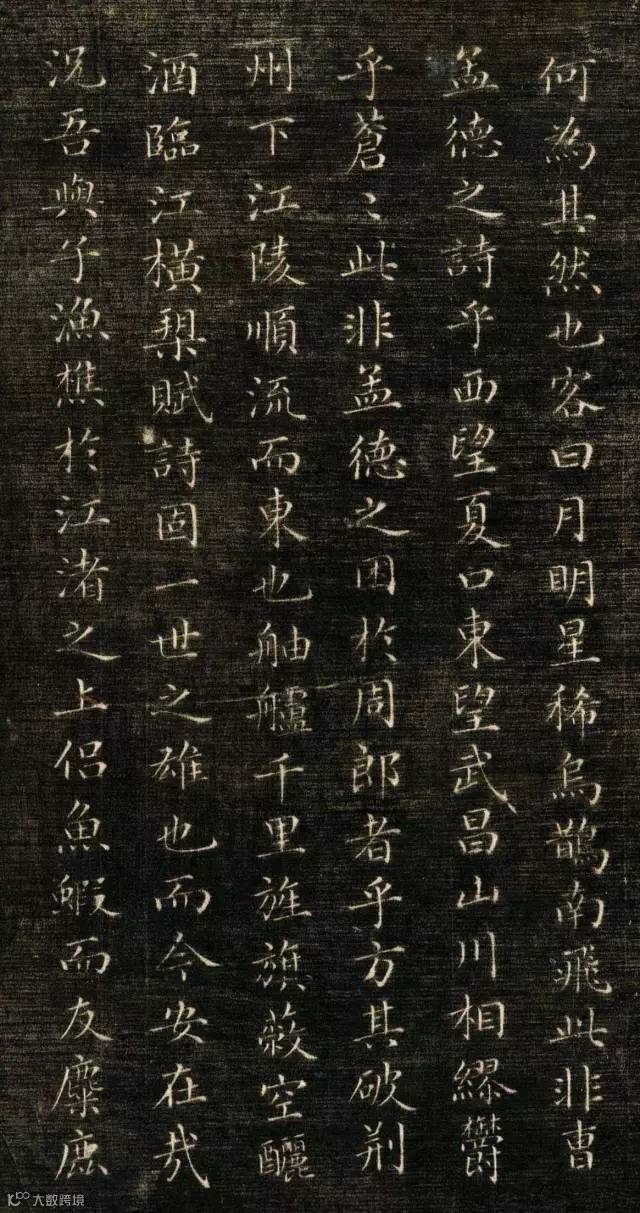 何為其然也客曰月明星稀烏鵲南飛此非曹
孟德之詩乎西望夏口東望武昌山川相繆鬱
乎蒼〻此非孟德之困於周郎者乎方其破荆
州下江陵順流而東也舳艫千里旌旗蔽空釃
酒臨江橫槊賦詩固一世之雄也而今安在哉
況吾與子漁樵於江渚之上侶魚鰕而友麋鹿
大数跨境